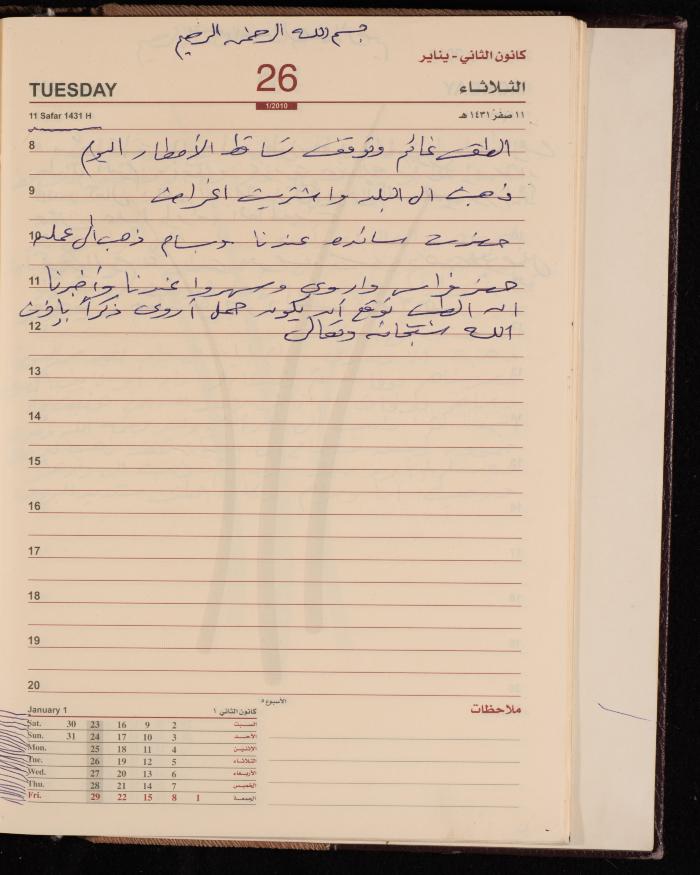 بسم الله الرحمن الرحيم
كانون الثاني - يناير
TUESDAY 26 الثلاثاء
1/2010
11 Safar 1431 H ١١ صفر ١٤٣١ هـ
8 الطقس غائم وتوقف تساقط الأمطار اليوم
9 ذهبت الى البلد واشتريت اغراض
10 حضرت سائده عندنا وسام ذهب الى عمله
11 حضر فراس واروى وسهروا عندنا وأخبرنا
ان الطب توقع أن يكون حمل أروى ذكراً بإذن
12 الله سبحانه وتعالى
13
14
15
16
17
18
19
20
الأسبوع ٥
ملاحظات
January 1 كانون الثاني ١
Sat. 30 23 16 9 2 السبت
Sun. 31 24 17 10 3 الأحد
Mon. 25 18 11 4 الإثنين
Tue. 26 19 12 5 الثلاثاء
Wed. 27 20 13 6 الأربعاء
Thu. 28 21 14 7 الخميس
Fri. 29 22 15 8 1 الجمعة